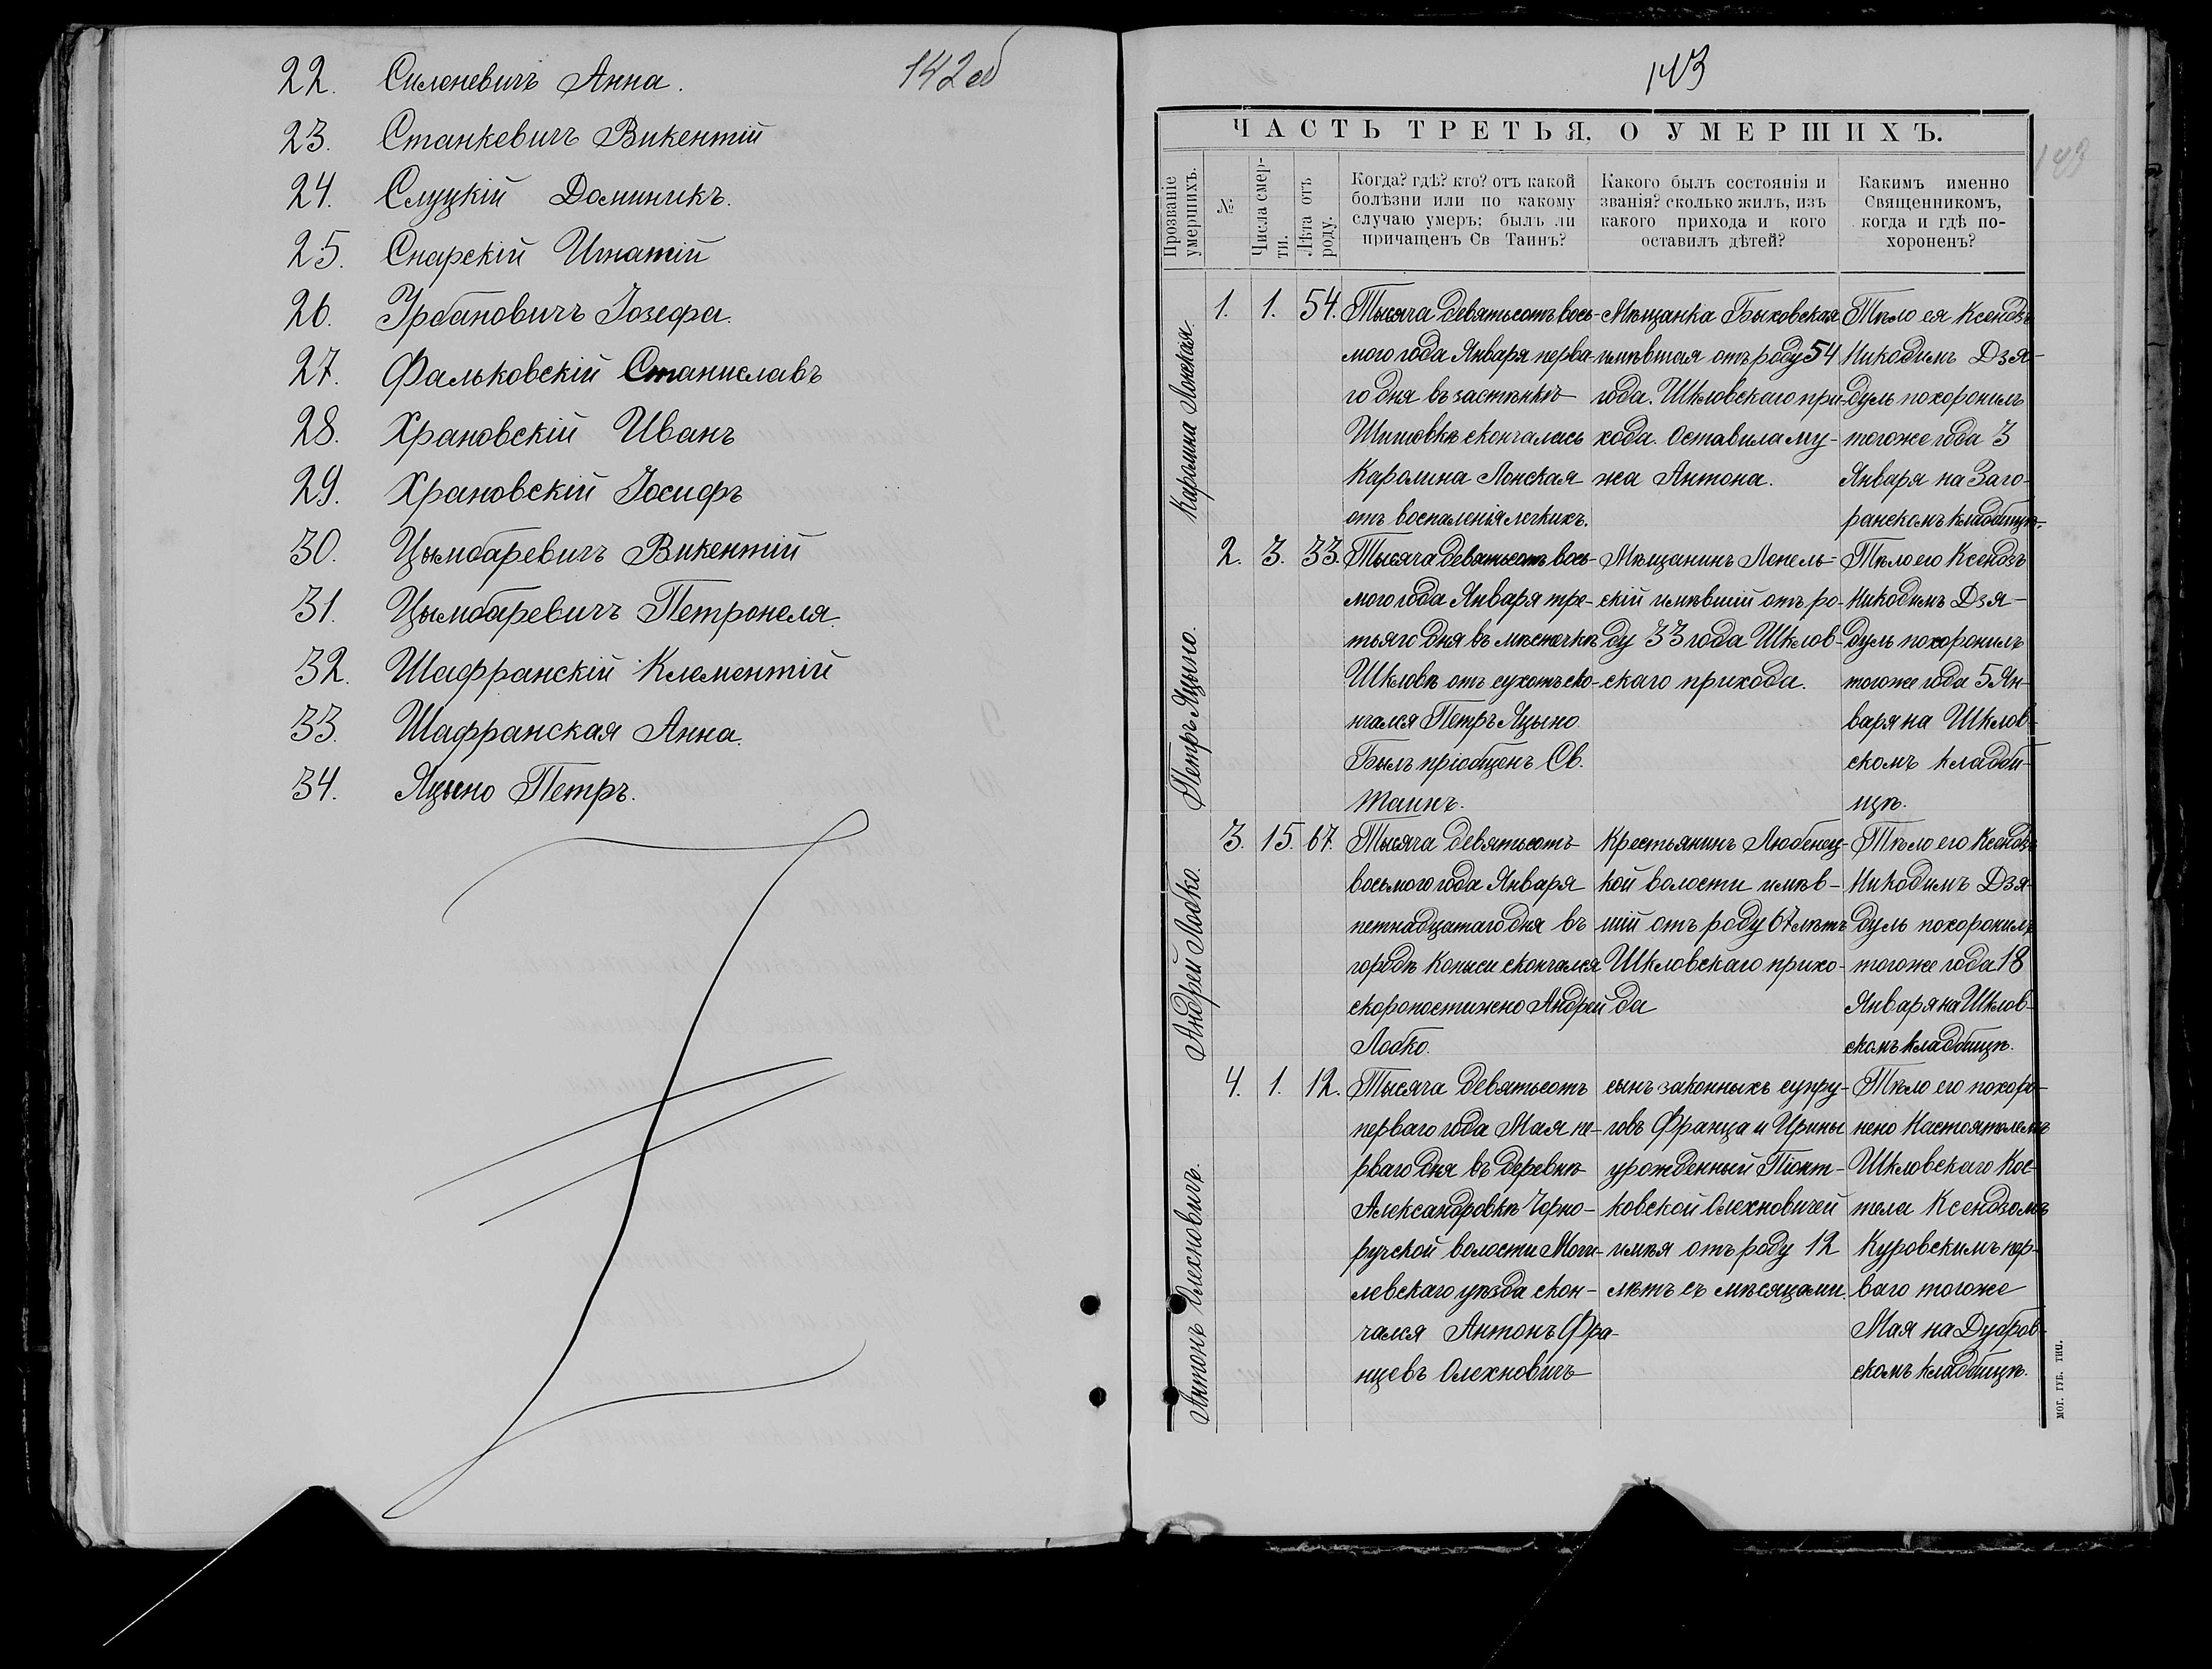 142об
22. Силеневичъ Анна.
23. Станкевичъ Викентій
24. Слуцкій Доминикъ.
25. Снарскій Игнатій
26. Урбановичъ Іозефа.
27. Фальковскій Станиславъ
28. Храновскій Иванъ
29. Храновскій Іосифъ
30. Цымбаревичъ Викентій
31. Цымбаревичъ Петронеля.
32. Шафранскій Клементій
33. Шафранская Анна.
34. Яцыно Петръ.
143
143
ЧАСТЬ ТРЕТЬЯ, О УМЕРШИХЪ.
Прозваніе умершихъ.
№
Числа смер-
ти.
Лѣта отъ
роду.
Когда? гдѣ? кто? отъ какой
болѣзни или по какому
случаю умеръ; былъ ли
причащенъ Св Таинъ?
Какого былъ состоянія и
званія? сколько жилъ, изъ
какого прихода и кого
оставилъ дѣтей?
Какимъ именно
Священникомъ,
когда и гдѣ по-
хороненъ?
Каролина Лонская.
1. 1. 54.
Тысяча девятьсотъ вось-
мого года Января перва-
го дня въ застѣнкѣ
Шитовкѣ скончалась
Каролина Лонская
отъ воспаленія легкихъ.
Мѣщанка Быховская
имѣвшая отъ роду 54
года. Шкловскаго при-
хода. Оставила му-
жа Антона.
Тѣло ея Ксендзъ
Никодимъ Дзя-
дуль похоронилъ
тогоже года 3
Января на Заго-
ранскомъ кладбищѣ.
Петръ Яцыно.
2. 3. 33.
Тысяча девятьсотъ вось-
мого года Января тре-
тьяго дня въ мѣстечкѣ
Шкловѣ отъ сухотъ ско-
нчался Петръ Яцыно.
Былъ пріобщенъ Св.
Таинъ.
Мѣщанинъ Лепель-
скій имѣвшій отъ ро-
ду 33 года Шклов-
скаго прихода.
Тѣло его Ксендзъ
Никодимъ Дзя-
дуль похоронилъ
тогоже года 5 Ян-
варя на Шклов-
скомъ кладби-
щѣ.
Андрей Лобко.
3. 15. 67.
Тысяча девятьсотъ
восьмого года Января
петнадцатаго дня въ
городѣ Копыси скончался
скоропостижно Андрей
Лобко.
Крестьянинъ Любенец-
кой волости имѣв-
шій отъ роду 67 лѣтъ
Шкловскаго прихо-
да
Тѣло его Ксендзъ
Никодимъ Дзя-
дуль похоронилъ
тогоже года 18
Января на Шклов-
скомъ кладбищѣ.
Антонъ Олехновичъ.
4. 1. 12.
Тысяча девятьсотъ
перваго года Мая пе-
рваго дня въ деревнѣ
Александровкѣ Черно-
ручской волости Моги-
левскаго уѣзда скон-
чался Антонъ Фра-
нцевъ Олехновичъ
сынъ законныхъ супру-
говъ Франца и Ирины
урожденный Піонт-
ковской Олехновичей
имѣя отъ роду 12
лѣтъ съ мѣсяцами.
Тѣло его похоро-
нено Настоятелемъ
Шкловскаго Кос-
тела Ксендзомъ
Куровскимъ пер-
ваго тогоже
Мая на Дубров-
скомъ кладбищѣ.
МОГ. ГУБ. ТИП.